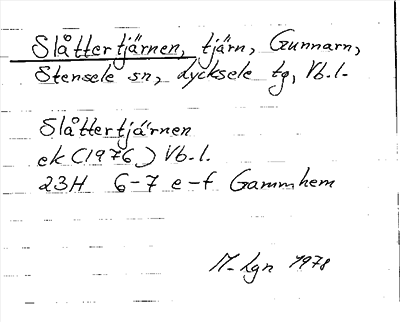 Slåttertjärnen, tjärn, Gunnarn,
Stensele sn, Lycksele tg, Vb.l.
Slåttertjärnen
ek (1976) Vb.l.
23H 6-7 e-f Gammhem
M-Lgn 1978